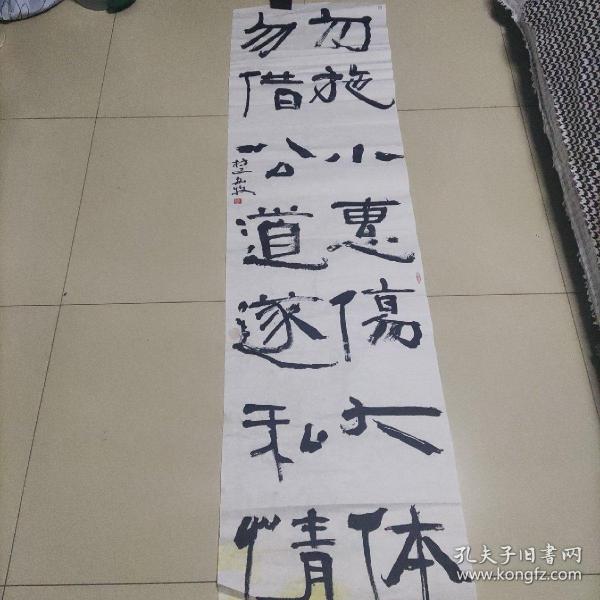 勿施小惠傷大体
勿借公道遂私情
孔夫子旧書网
www.kongfz.com